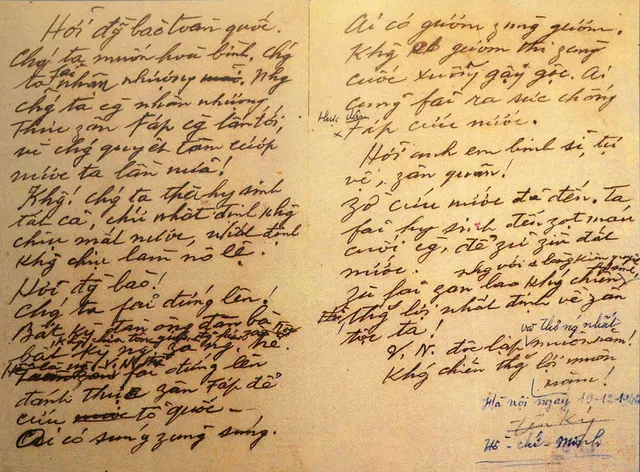 Hỡi đ/ bào toàn quốc.
Chg' ta muốn hoà bình, chg'
ta fải nhân nhượng. Nhg
chg' ta cg nhân nhượng
thực zân Fáp cg lấn tới,
vì chg' quyết tâm cướp
nước ta lần nữa!
Khg! chg' ta thà hy sinh
tất cả, chứ nhất định khg
chịu mất nước, nhất định
khg chịu làm nô lệ.
Hỡi đ/ bào!
Chg' ta fải đứng lên!
Bất kỳ đàn ông đàn bà
bất kỳ ng' zà ng' trẻ.
Hễ là ng' V.N. thì
fải đứng lên
đánh thực zân Fáp để
cứu tổ quốc –
Ai có súng zùng súng.
Ai có gươm zùng gươm.
Khg có gươm thì zùng
cuốc xuổng gậy gộc. Ai
cũng fải ra sức chống
thực dân
Fáp cứu nước.
Hỡi anh em binh sĩ, tự
vệ, zân quân!
Zờ cứu nước đã đến. Ta
fải hy sinh đến zọt máu
cuối cg, để zữ zìn đất
nước.
Zù fải zan lao khg chiến
thg' lợi nhất định về zân
tộc ta!
V.N. độc lập và thống nhất
muôn năm!
Khg' chiến thg' lợi muôn
năm!
Hà nội ngày 19-12-1946
Hồ-chí-Minh